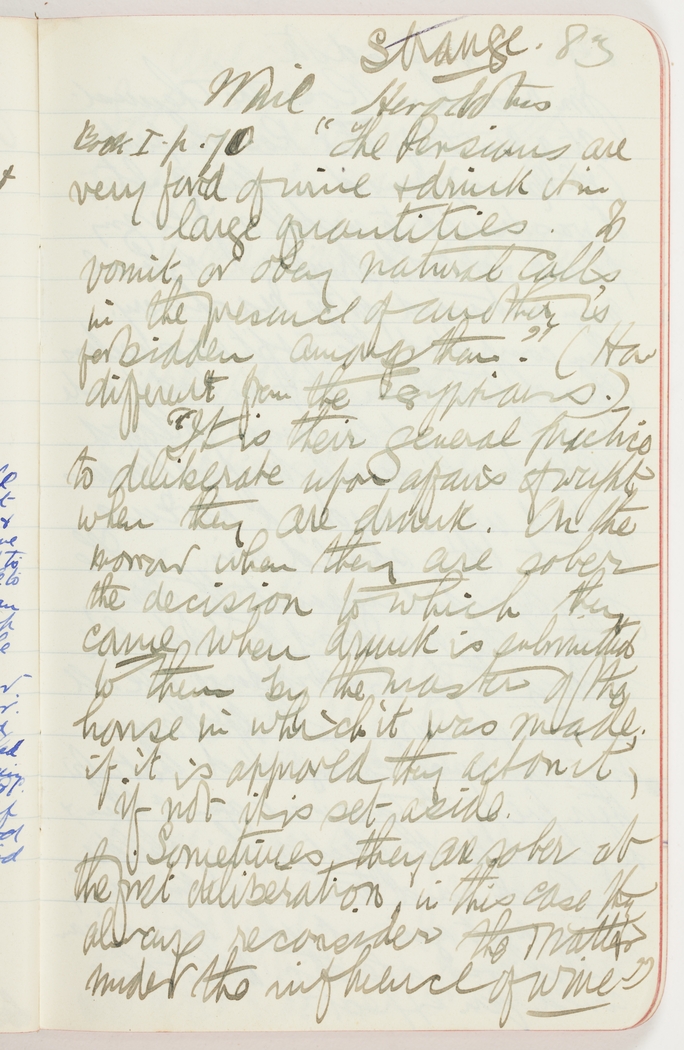 Strange. 83
Herodotus
Book I. p. 70 "The Persians are
very fond of wine & drink it in
large quantities. To
vomit, or obey natural calls
in the presence of another, is
forbidden amongst them." (How
different from the Egyptians.)
"It is their general practice
to deliberate upon affairs of weight
when they are drunk. On the
morrow when they are sober
the decision to which they
came when drunk is submitted
to them by the master of the
house in which it was made;
if it is approved they act on it,
if not it is set aside.
Sometimes they are sober at
the first deliberation, in this case they
always reconsider the matter
under the influence of wine"